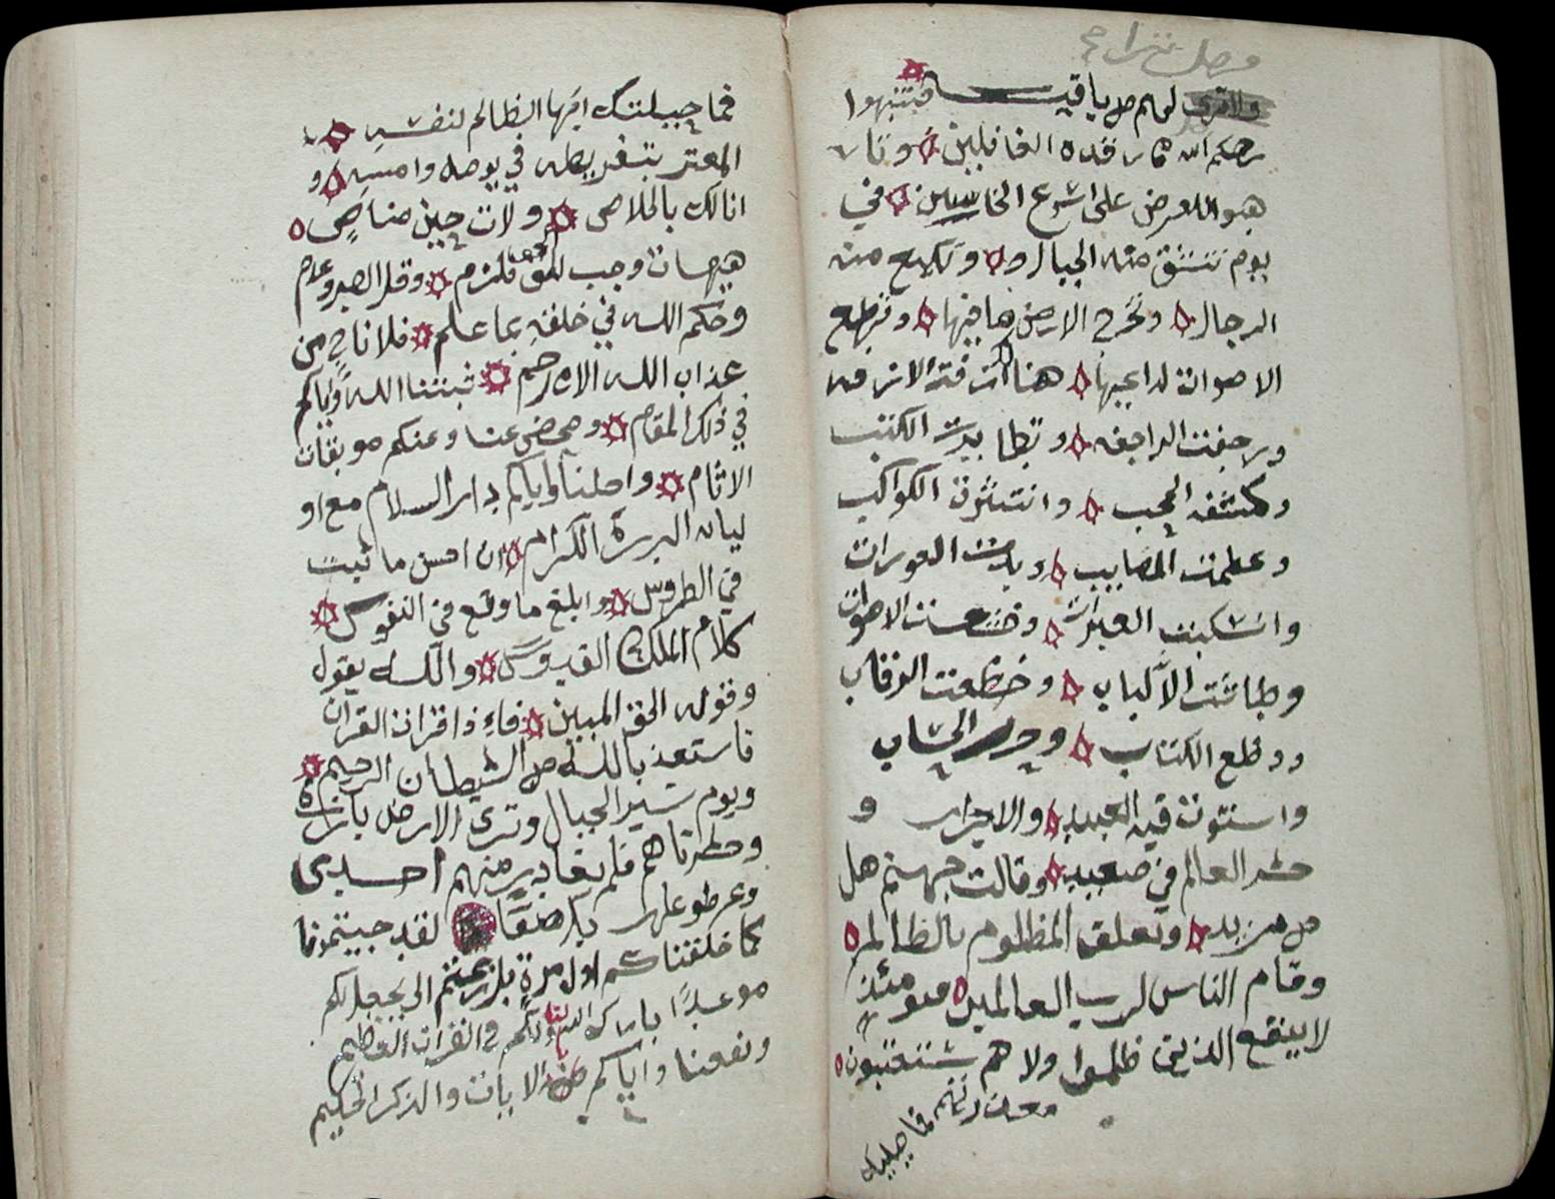 ولا ترى لهم من باقية فتنبهوا
رحمكم الله من رقدة الغافلين وتا
هبوا للعرض على اسرع الحاسبين في
يوم تنشق منه الجبال و وتكلح منه
الرجال وتخرج الارض ما فيها وترفع
الاصوات لداعيها هنالك ازفت الازفه
ورجفت الراجفه وتطايرت الكتب
وكشفت الحجب وانتثرت الكواكب
وعظمت المصايب وبدت العورات
وانسكبت العبرات وخشعت الاصوات
وطاشت الالباب وخضعت الرقاب
ووضع الكتاب وحرر الحساب
واستوت فيه العبيد والاحرار و
حشر العالم في صعيد وقالت جهنم هل
من مزيد وتعلق المظلوم بالظالم
وقام الناس لرب العالمين فيومئذ
لا ينفع الذين ظلموا ولا هم يستعتبون
معذرتهم فما حيلتك
فما حيلتك ايها الظالم لنفسه
المغتر بتفريطه في يومه وامسه و
انا لك بالخلاص ولات حين مناص
هيهات وجب الحق فلزم وقل الصبر وعدم
وحكم الله في خلقه بما علم فلا ناج من
عذاب الله الا من رحم ثبتنا الله واياكم
في ذلك المقام ومحض عنا وعنكم موبقات
الاثام واحلنا واياكم دار السلام مع او
ليائه البررة الكرام ان احسن ما ثبت
في الطروس وابلغ ما وقع في النفوس
كلام الملك القدوس والله يقول
وقوله الحق المبين فاءذا قرات القران
فاستعذ بالله من الشيطان الرجيم
ويوم نسير الجبال وترى الارض بارزة
وحشرناهم فلم نغادر منهم احدى
وعرضو على ربك صفا لقد جيتمونا
كما خلقناكم اول مرة بل زعمتم الن نجعل لكم
موعدا بارك الله لنا ولكم في القران العظيم
ونفعنا واياكم من الايات والذكر الحكيم